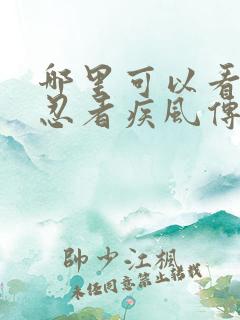 哪里可以看
忍者疾风传
帥少江楓
未经同意禁止搭载